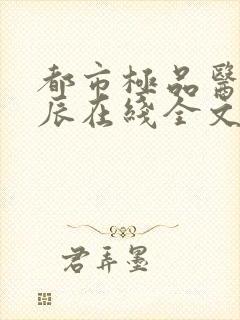 都市極品醫
辰在綫全文
君弄墨